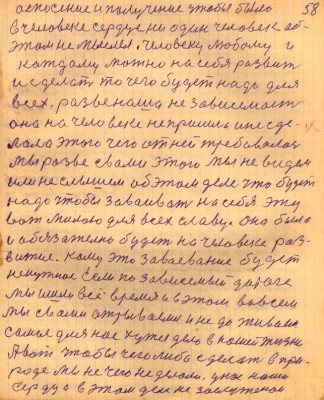 58
опсосение и получение чтобы было
в человеке сердуе ни один человек об
этом не мыслел. Человеку любому и
каждому можно на себя развит
и сделат то чего будет надо для
всех, разве наша не зависемаст
она на человеке непришла и не сде-
лала этого чего от ней требовалас
мы разве с вами этого мы не видем
или не слышем об этом деле что будет
надо чтобы заваиват на себя эту
вот милою для всех славу. Она была
и обязателно будет на человеке раз-
витие. Кому это заваевание будет
ненужное если по зависемый дороге
мы шли всё время и в этом во всем
мы с вами отрывали и не до живали
самые для нас хужи дни в нашей жизни
А вот чтобы чего либо сделат в при-
роде мы не чего неделали, у нас наши
сердуа в этом деле не заслуженые